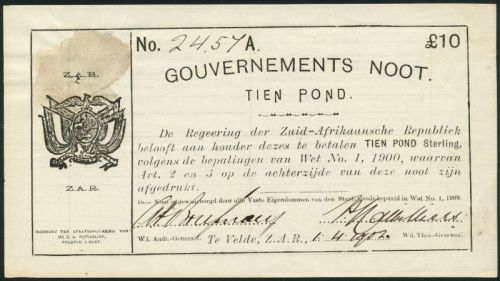 No. 2457 A.
£10
GOUVERNEMENTS NOOT.
TIEN POND.
Z.A.R.
De Regeering der Zuid-Afrikaansche Republiek
belooft aan houder dezes te betalen TIEN POND Sterling,
volgens de bepalingen van Wet No. 1, 1900, waarvan
Art. 2 en 3 op de achterzijde van deze noot zijn
afgedrukt.
Z.A.R.
Deze Noot is gewaarborgd door alle Vaste Eigendommen van den Staat, zooals bepaald in Wet No. 1, 1900.
GEDRUKT TER STAATSDRUKKERIJ VAN
DE Z. A. REPUBLIEK,
PELGRIM'S RUST.
Wd. Audt.-Generaal.
Te Velde, Z.A.R., 1.4.1902
Wd. Thes.-Generaal.